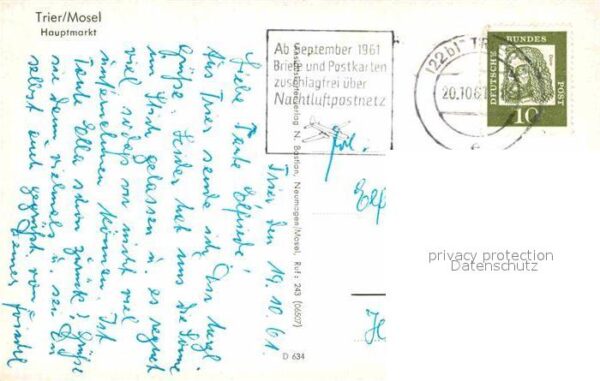 Trier/Mosel
Hauptmarkt
Ab September 1961
Briefe und Postkarten
zuschlagfrei über
Nachtluftpostnetz
(22b) TR
20.10.61
e
DEUTSCHE BUNDES POST
10
Frl.
Elf
H
privacy protection
Datenschutz
Verlag N. Bastian, Neumagen/Mosel, Ruf: 243 (06507)
D 634
Trier den 19.10.61.
Liebe Tante Elfriede!
Aus Trier sende ich Dir herzl.
Grüße. Leider hat uns die Sonne
im Stich gelassen u. es regnet
viel sodaß wir nicht viel
unternehmen können. Ist
Tante Ella schon zurück? Grüße
sie dann vielmals u. sei Du
selbst auch gegrüßt von
Deiner